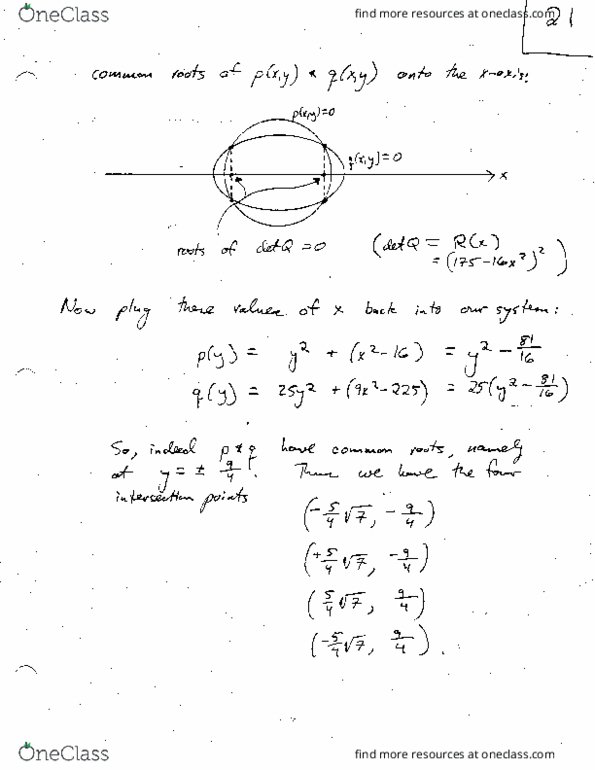 OneClass
find more resources at oneclass.com
21
common roots of p(x,y) & q(x,y) onto the x-axis:
p(x,y)=0
q(x,y)=0
x
roots of det Q = 0
(det Q = R(x)
= (175-16x²)²)
Now plug these values of x back into our system:
p(y) = y² + (x²-16) = y² - 81/16
q(y) = 25y² + (9x²-225) = 25(y² - 81/16)
So, indeed p & q have common roots, namely
at y = ± 9/4. Then we have the four
intersection points
(-5/4 √7, -9/4)
(+5/4 √7, -9/4)
(5/4 √7, 9/4)
(-5/4 √7, 9/4).
OneClass
find more resources at oneclass.com